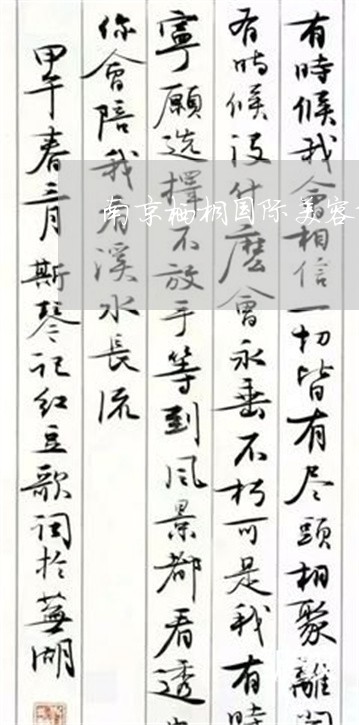 有時候我會相信一切皆有尽頭相聚離
有時候没什麽會永垂不朽可是我有時
寧願选擇不放手等到风景都看透
你會陪我看溪水長流
甲午春三月斯琴记红豆歌詞於蕪湖
南京国际美容